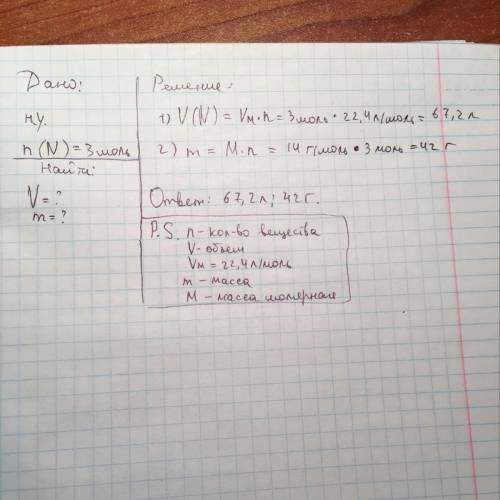 Дано:
н.у.
n(N) = 3 моль
Найти:
V = ?
m = ?
Решение:
1) V(N) = Vм·n = 3 моль · 22,4 л/моль = 67,2 л
2) m = M·n = 14 г/моль · 3 моль = 42 г
Ответ: 67,2 л; 42 г.
P.S. n - кол-во вещества
V - объем
Vм = 22,4 л/моль
m - масса
M - масса молярная